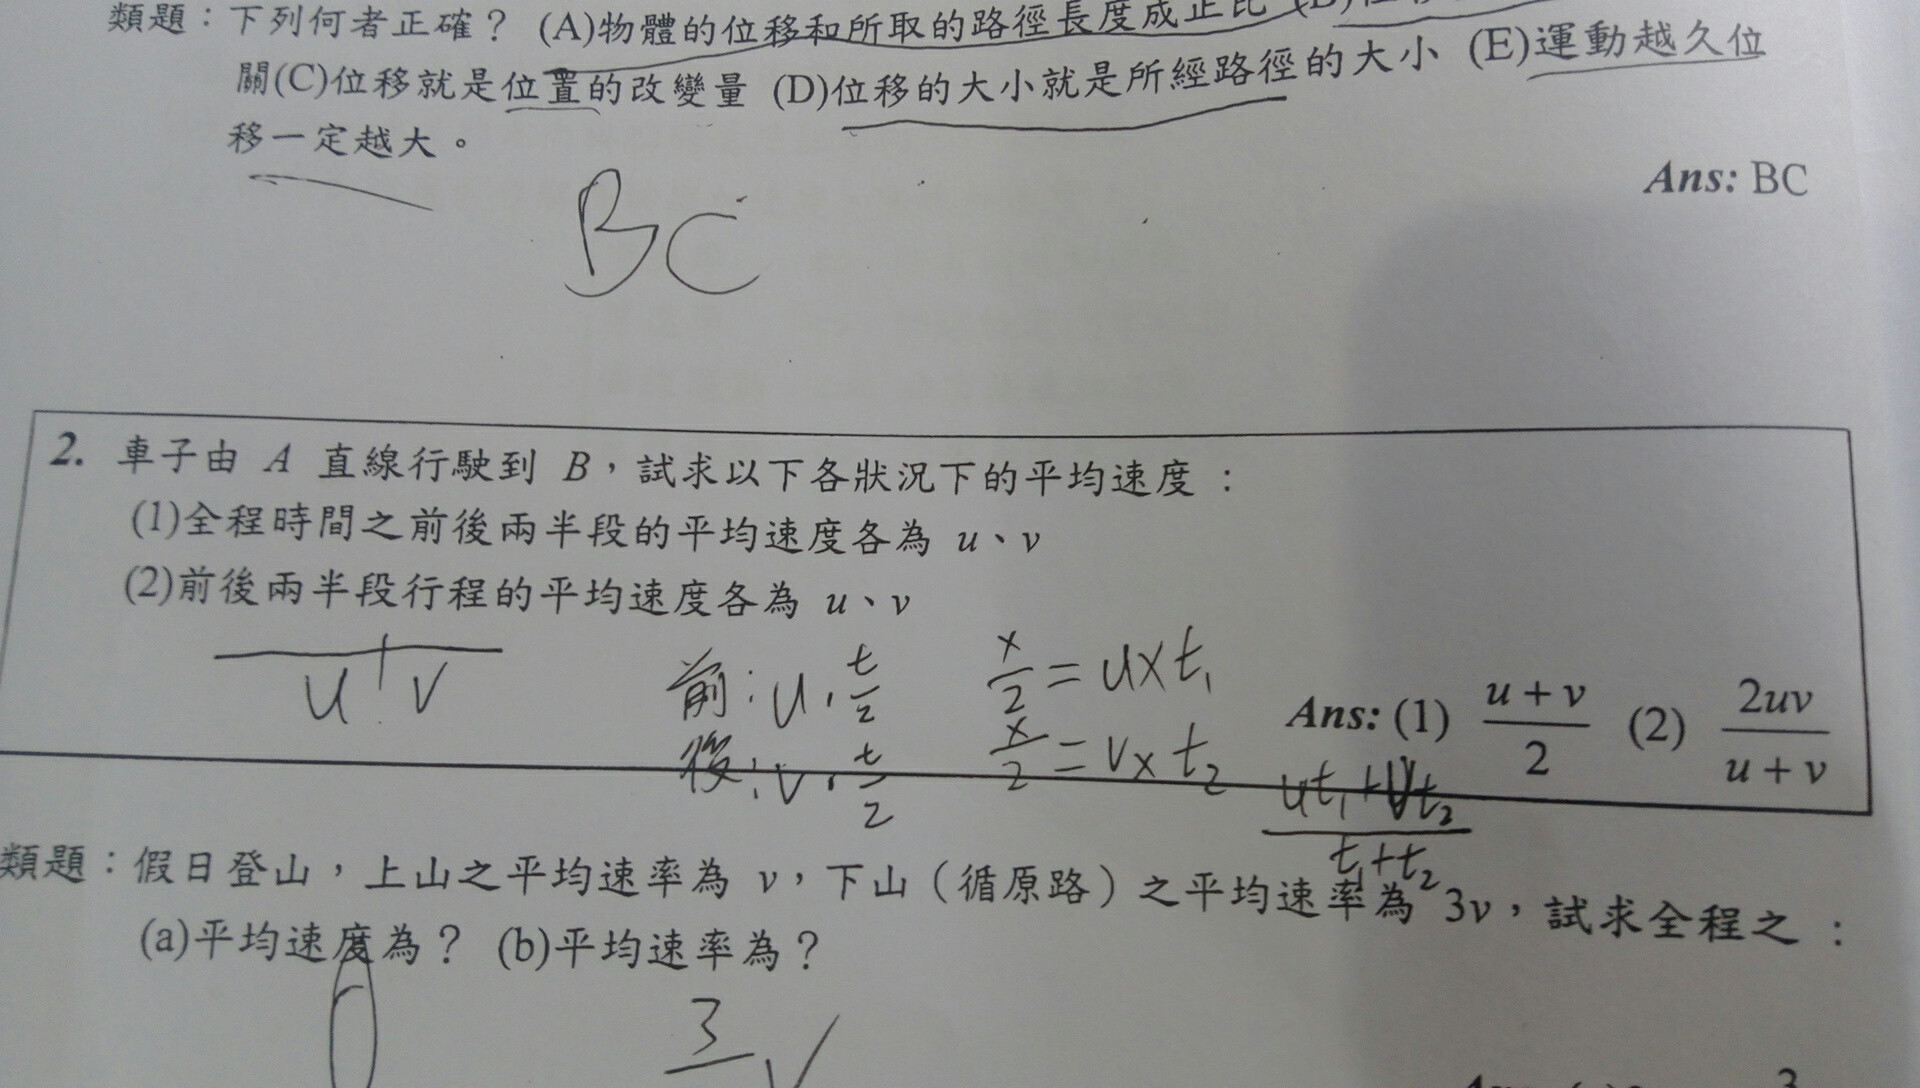 類題：下列何者正確？ (A)物體的位移和所取的路徑長度成正比 (B)位移
關(C)位移就是位置的改變量 (D)位移的大小就是所經路徑的大小 (E)運動越久位
移一定越大。
Ans: BC
BC
2. 車子由 A 直線行駛到 B，試求以下各狀況下的平均速度：
(1)全程時間之前後兩半段的平均速度各為 u、v
(2)前後兩半段行程的平均速度各為 u、v
u v
前: u · t/2
後: v · t/2
x/2 = u×t₁
x/2 = v×t₂
Ans: (1) (u + v)/2 (2) 2uv/(u + v)
(ut₁+vt₂)/(t₁+t₂)
類題：假日登山，上山之平均速率為 v，下山（循原路）之平均速率為 3v，試求全程之：
(a)平均速度為？ (b)平均速率為？
0
3
v
3